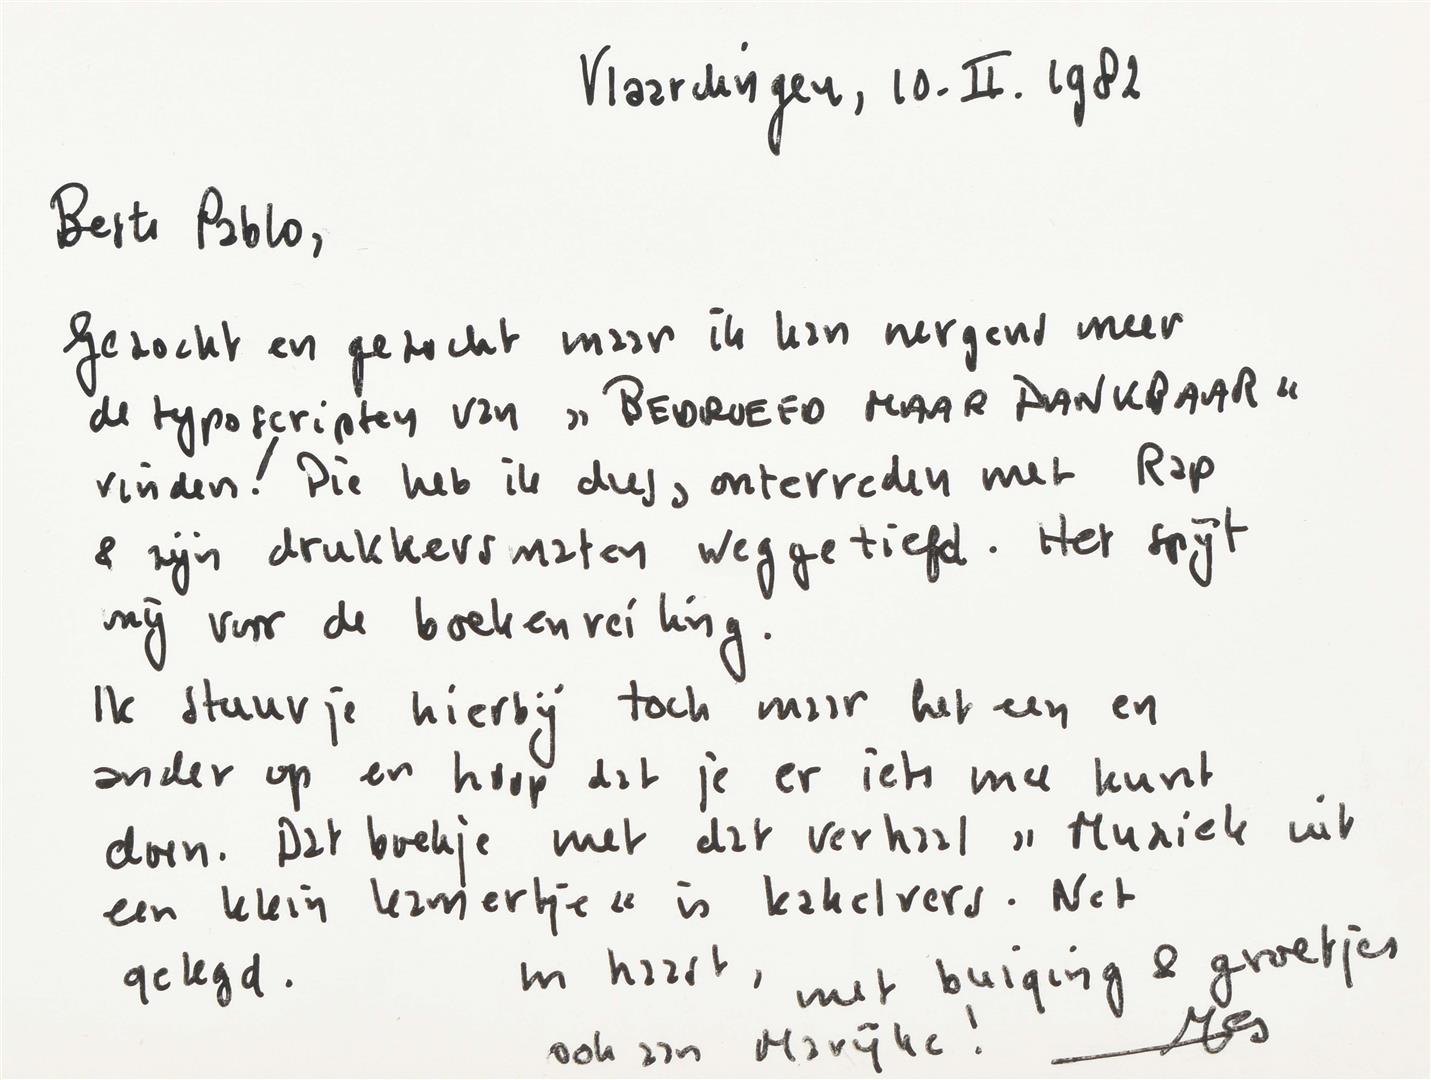 Vlaardingen, 10-II. 1982
Beste Pablo,
Gezocht en gezocht maar ik kan nergens meer
de typoscripten van „BEDROEFD MAAR DANKBAAR“
vinden! Die heb ik dus, ontevreden met Rap
& zijn drukkersmaten weggetiefd. Het spijt
mij voor de boekenveiling.
Ik stuur je hierbij toch maar het een en
ander op en hoop dat je er iets mee kunt
doen. Dat boekje met dat verhaal „Muziek uit
een klein kamertje“ is kakelvers. Net
gelegd. In haast, met buiging & groetjes
ook aan Marijke! Mes